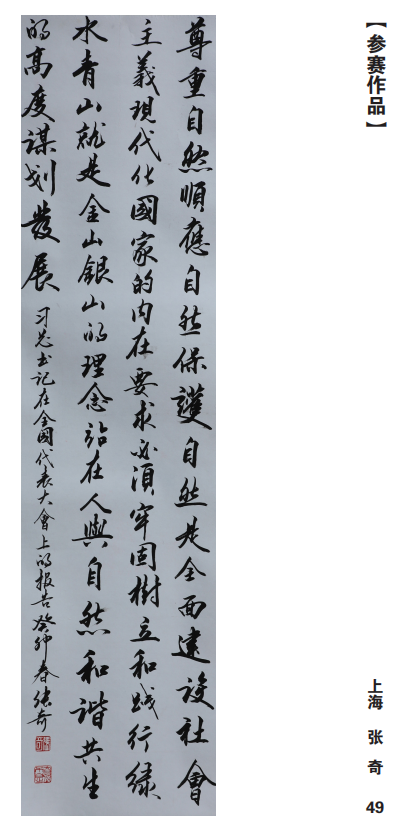 【参赛作品】
上海 张奇
49
尊重自然順應自然保護自然是全面建設社會
主義現代化國家的内在要求必須牢固樹立和践行緑
水青山就是金山銀山的理念站在人與自然和諧共生
的高度謀划發展
习总书记在全國代表大會上的报告癸卯春张奇